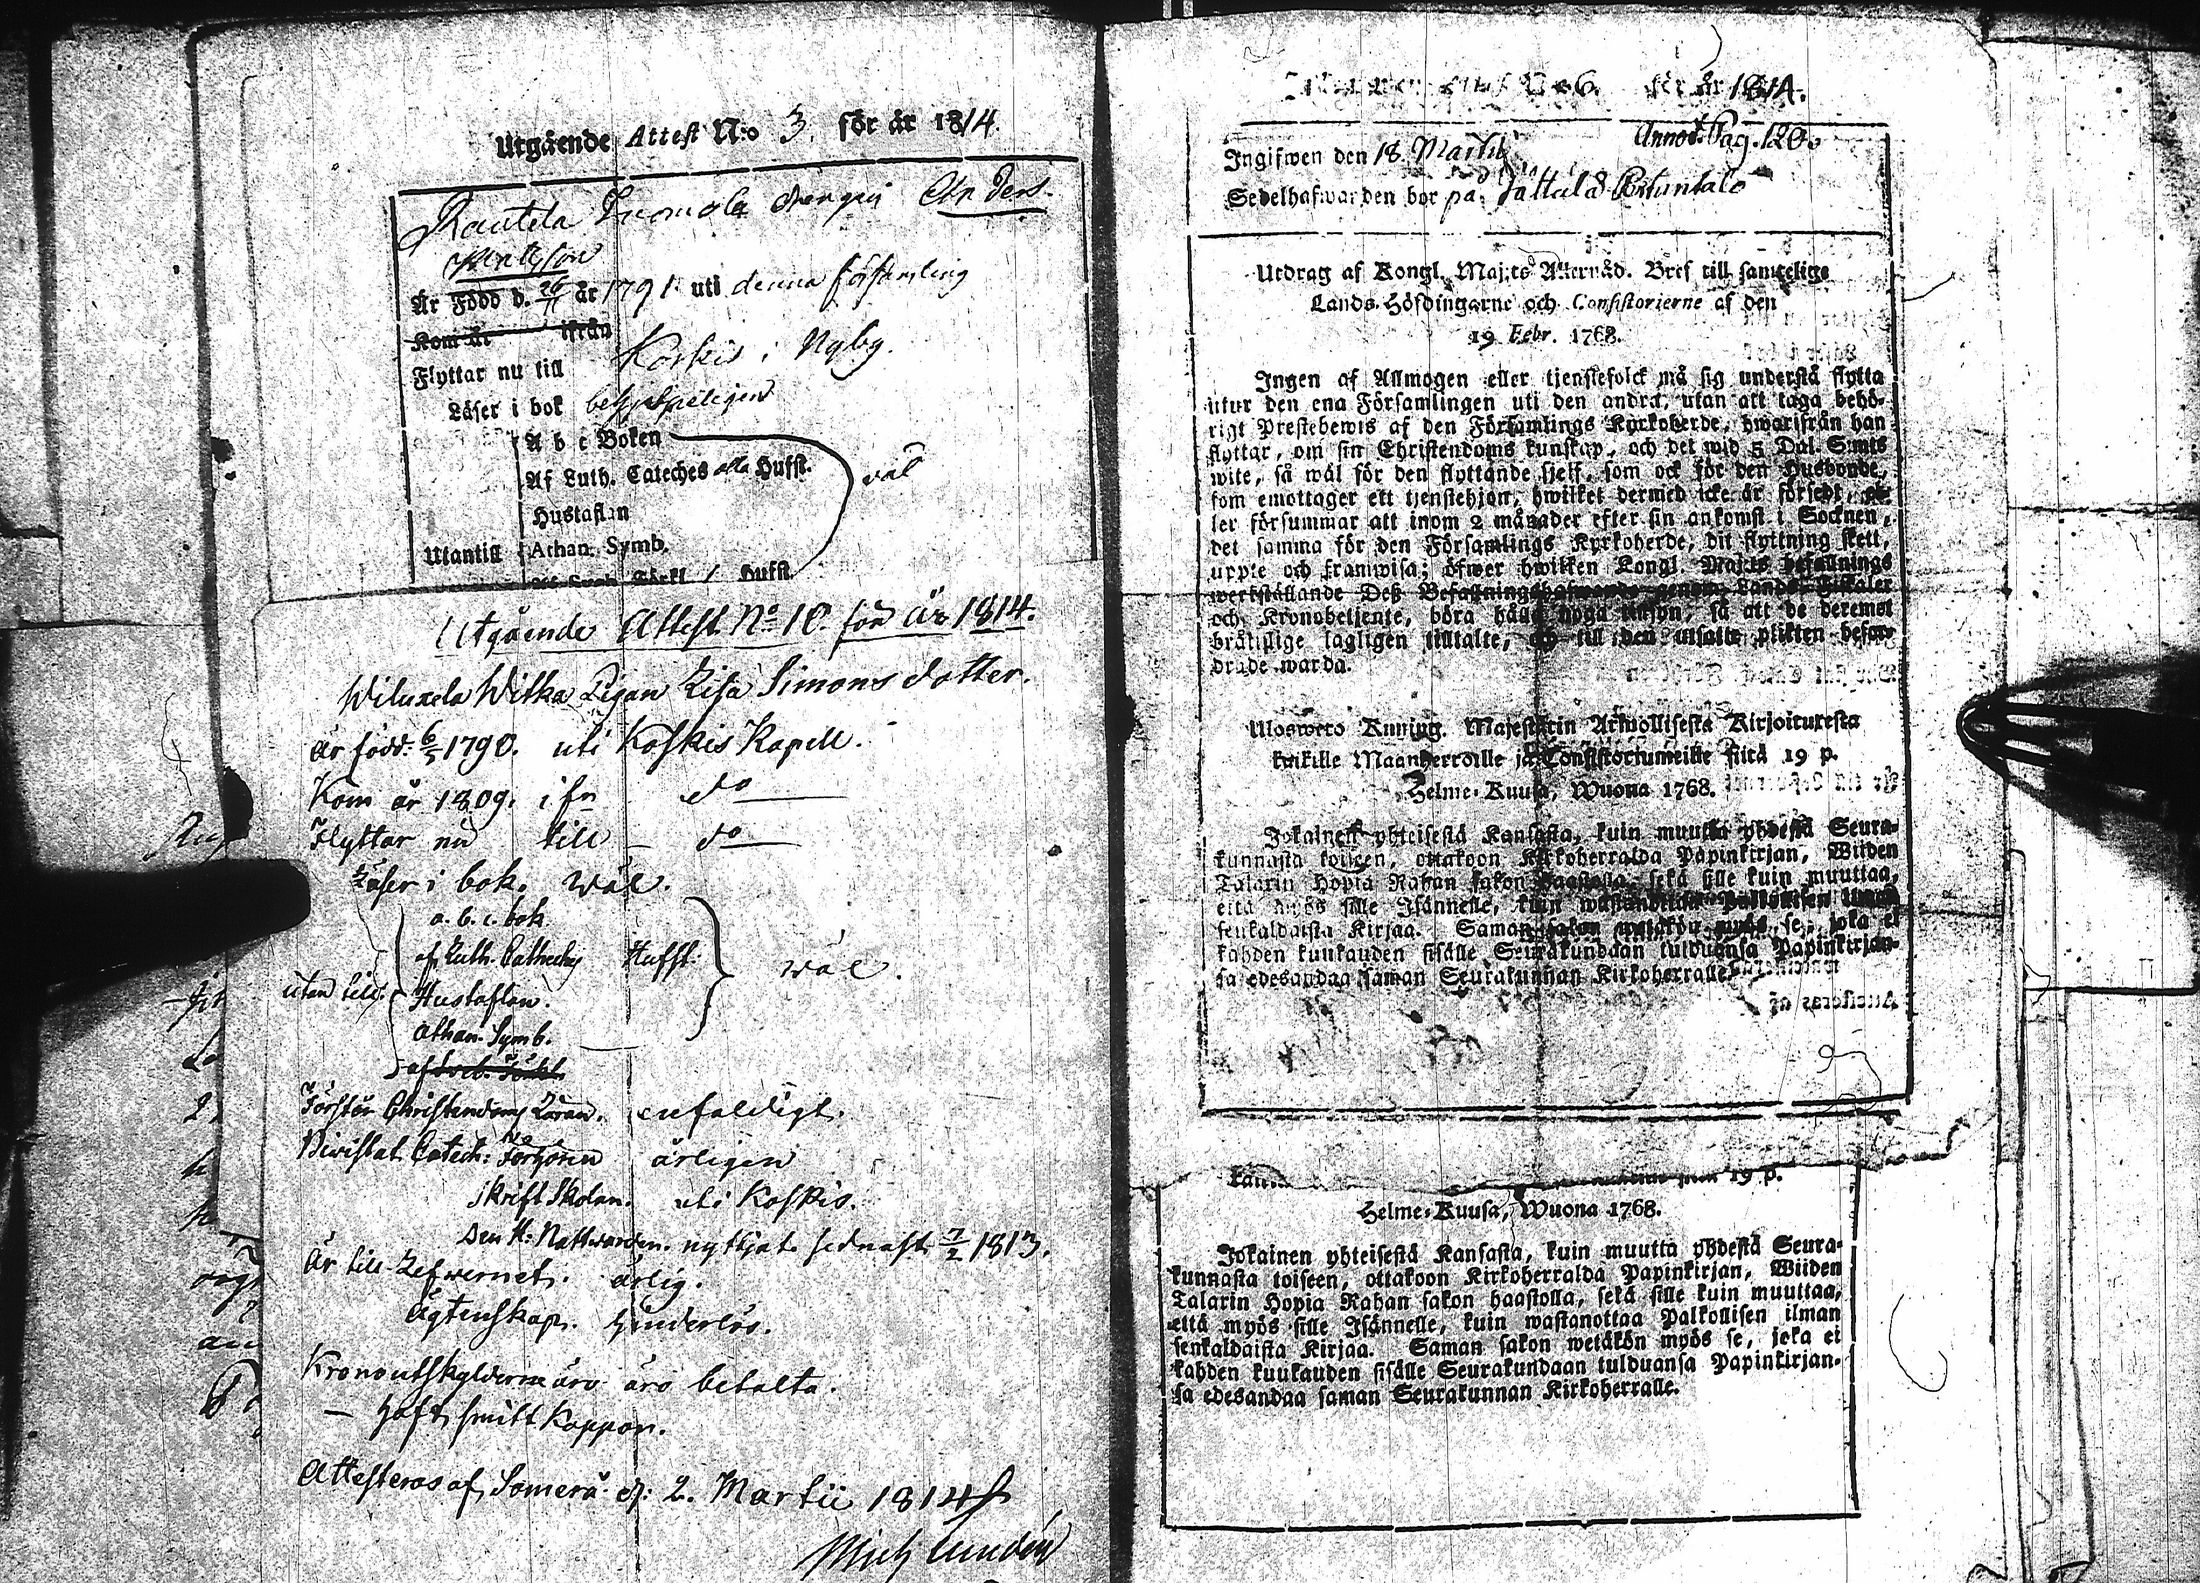 Utgående Attest N:o 3 för år 1814.
Rautela Tuomola drengen Anders
Är Född d. 26/11 år 1791 uti denna församling
Kom år ifrån
Flyttar nu till Koskis i Nyby.
Läser i bok
A b c Boken
Af Luth. Cateches alla Hufst. väl
Hustaflan
Utantill Athan. Symb.
Utgående Attest No 10. för år 1814.
Witka Pigan Lisa Simons dotter.
är född 1790. uti Koskis Kapell.
Kom år 1809. ifrn do
Flyttar nu till do
Läser i bok. wäl.
a. b. c. bok
af Luth. Hufst.
utan till Hustaflan. wäl.
Athan. Symb.
af Sveb. Förkl.
Förstår Christendoms Läran. enfaldigt.
Biwistat Catech: Förhören årligen
skriftskolan. uti Koskis.
Den H: Nattwarden. nyttjat sednast 7/2 1813.
Är till Lefwernet. ärlig.
Ägtenskap. hinderlös.
Kronoutskylderne äro betalta.
haft smittkoppor.
Attesteras af Somerå d: 2. Martii 1814
Mich
för år 1814.
Ingifwen den 18. Martii Pag. 120.
Sedelhafwarden bor på
Utdrag af Kongl. Maj:ts Allernåd. Bref till samtelige
Lands-Höfdingarne och Consistorierne af den
19 Febr. 1768.
Ingen af Allmogen eller tjenstefolck må sig understå flytta
utur den ena Församlingen uti den andra, utan att taga behö-
rigt Prestebewis af den Församlings Kyrkoherde, hwarifrån han
flyttar, om sin Christendoms kunskap, och det wid 5 Dal. Smts
wite, så wäl för den flyttande sjelf, som ock för den Husbonde,
som emottager ett tjenstehjon, hwilket dermed icke är försedt, el-
ler försummar att inom 2 månader efter sin ankomst i Socknen,
det samma för den Församlings Kyrkoherde, dit flyttning skett,
upte och framwisa; öfwer hwilken Kongl. Maj:ts befallnings
werkställande Deß Befallningshafwande genom Lands-Fiskaler
och Kronobetjente, böra hafwa noga tillsyn, så att de deremot
bråtslige lagligen tilltalte, och till den utsatte plikten befor-
drade warda.
Uloswetto Kuning. Majestetin Armollisesta Kirjoituresta
kaikille Maanherroille ja Consistoriumeille siitä 19 p.
Helme-Kuusa, Wuona 1768.
Jokainen yhteisestä Kansasta, kuin muutta yhdestä Seura-
kunnasta toiseen, ottakoon Kirkoherralda Papinkirjan, Wiiden
Talarin Hopia Rahan sakon haastolla, sekä sille kuin muuttaa,
että myös sille Isännelle, kuin wastanottaa Palkollisen ilman
senkaldaista Kirjaa. Saman sakon wetäkön myös se, joka ei
kahden kuukauden sisälle Seurakundaan tulduansa Papinkirjan-
sa edesandaa saman Seurakunnan Kirkoherralle.
19 p.
Helme-Kuusa, Wuona 1768.
Jokainen yhteisestä Kansasta, kuin muutta yhdestä Seura-
kunnasta toiseen, ottakoon Kirkoherralda Papinkirjan, Wiiden
Talarin Hopia Rahan sakon haastolla, sekä sille kuin muuttaa,
että myös sille Isännelle, kuin wastanottaa Palkollisen ilman
senkaldaista Kirjaa. Saman sakon wetäkön myös se, joka ei
kahden kuukauden sisälle Seurakundaan tulduansa Papinkirjan-
sa edesandaa saman Seurakunnan Kirkoherralle.